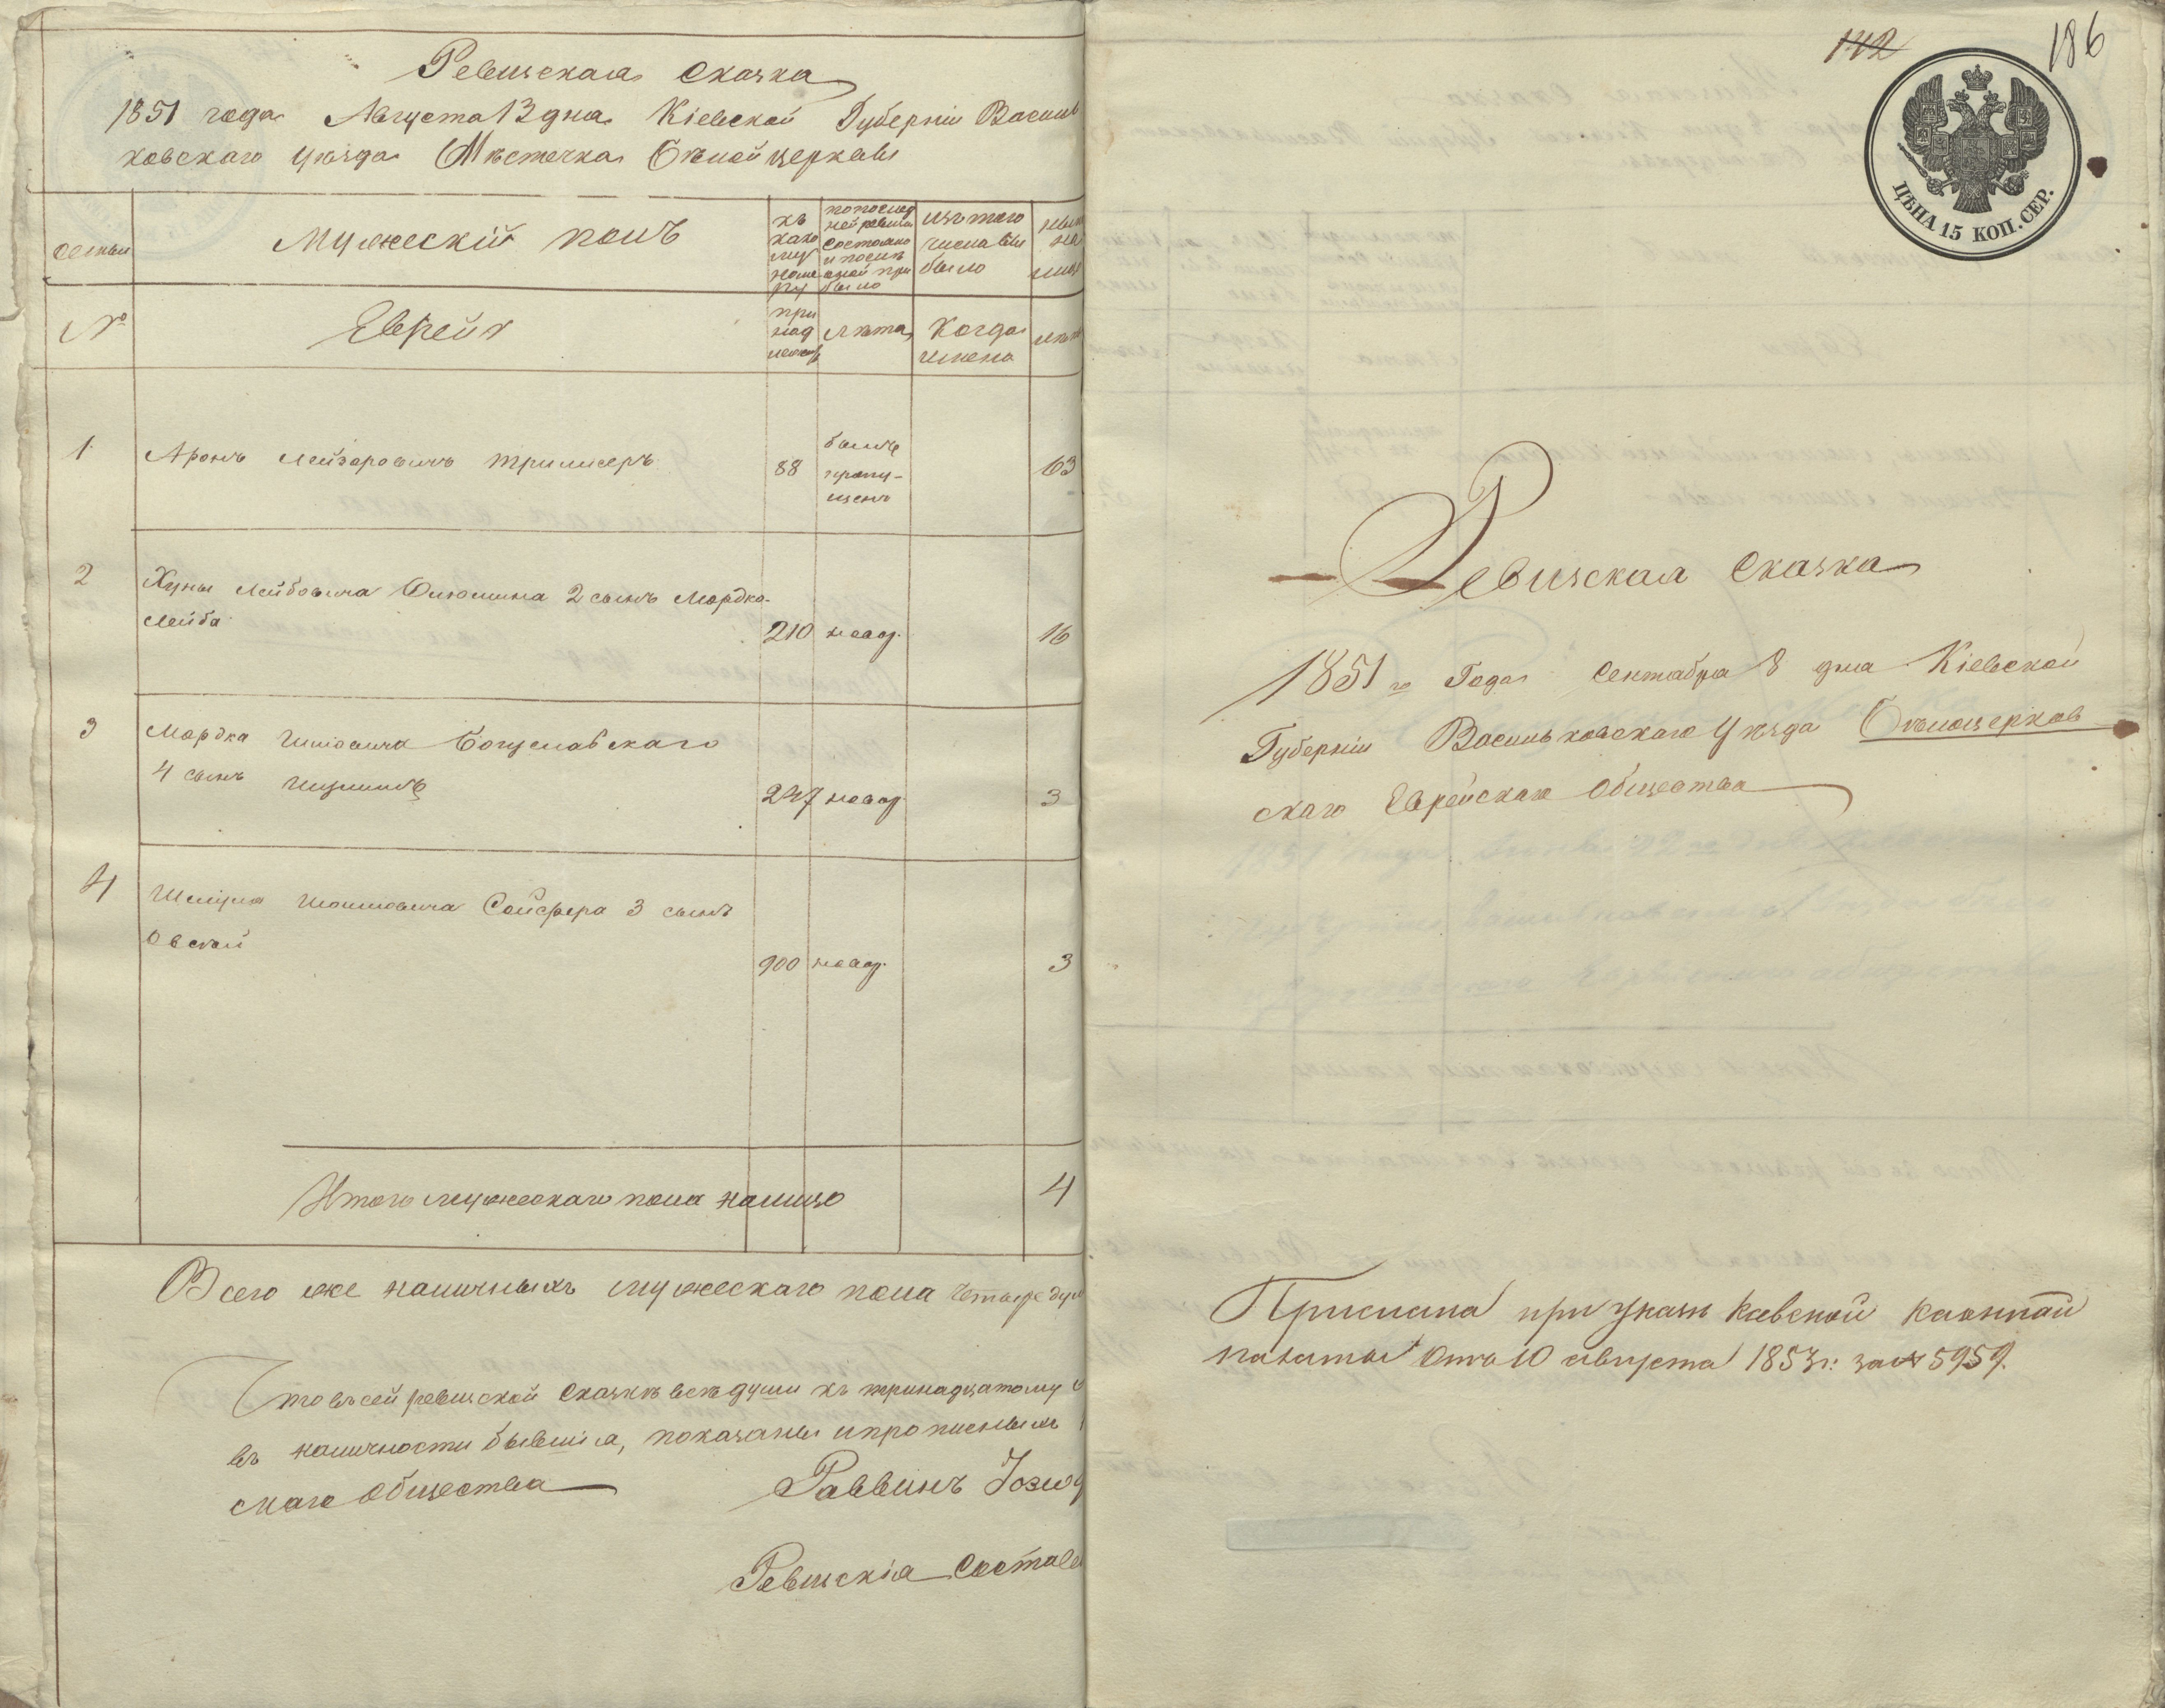 Ревизская Сказка
1851 года Августа 13 дня Кіевской Губерніи Василь
ковскаго уѣзда Мѣстечка Бѣлой церкви
Семьи
Мужескій полъ
къ
како
му
номе
ру
попослед
ней ревизіи
состояло
и послѣ
оной при
было
изъ того
числа вы
было
№
Евреи
при
над
лежитъ
лѣта
Когда
имено
1
Аронъ Лейзоровичъ Трилисеръ
88
былъ
пропу-
щенъ
63
2
Хуны Лейбовича 2 сынъ Мордко-
Лейба
210
новор.
16
3
Мордка Ициовича Богуславскаго
4 сынъ
247
новор
3
4
Шмуля Сойфера 3 сынъ
Овсей
900
новор.
3
Итого мужескаго пола налицо
4
Всего же наличныхъ мужескаго пола четыре душ
Что въ сей ревизской сказкѣ всѣ души къ тринадцатому
въ наличности бывшія, показаны и прописныхъ
скаго общества
Раввинъ
Ревизскія Состав
142
186
ЦѢНА 15 КОП. СЕР.
Ревизская Сказка
1851 го Года Сентября 8 дня Кіевской
Губерніи Васильковскаго Уѣзда Бѣлоцерков
скаго Еврейскаго Общества
Прислана при указѣ Кіевской казенной
палаты отъ 10 августа 1853 г: за № 5959.